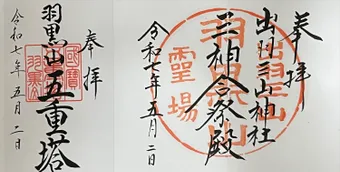 奉拝
羽黒山五重塔
令和七年五月二日
奉拝
出羽三山神社
三神合祭殿
令和七年五月二日
靈場